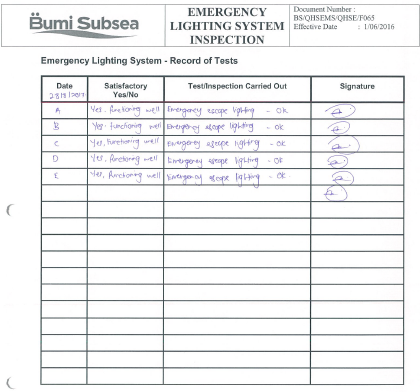 Bumi Subsea
EMERGENCY
LIGHTING SYSTEM
INSPECTION
Document Number :
BS/QHSEMS/QHSE/F065
Effective Date : 1/06/2016
Emergency Lighting System - Record of Tests
Date Satisfactory Yes/No Test/Inspection Carried Out Signature
28/8/2017
A Yes, functioning well Emergency escape lighting - Ok
B Yes, functioning well Emergency escape lighting - Ok
C Yes, functioning well Emergency escape lighting - Ok
D Yes, functioning well Emergency escape lighting - Ok
E Yes, functioning well Emergency escape lighting - Ok